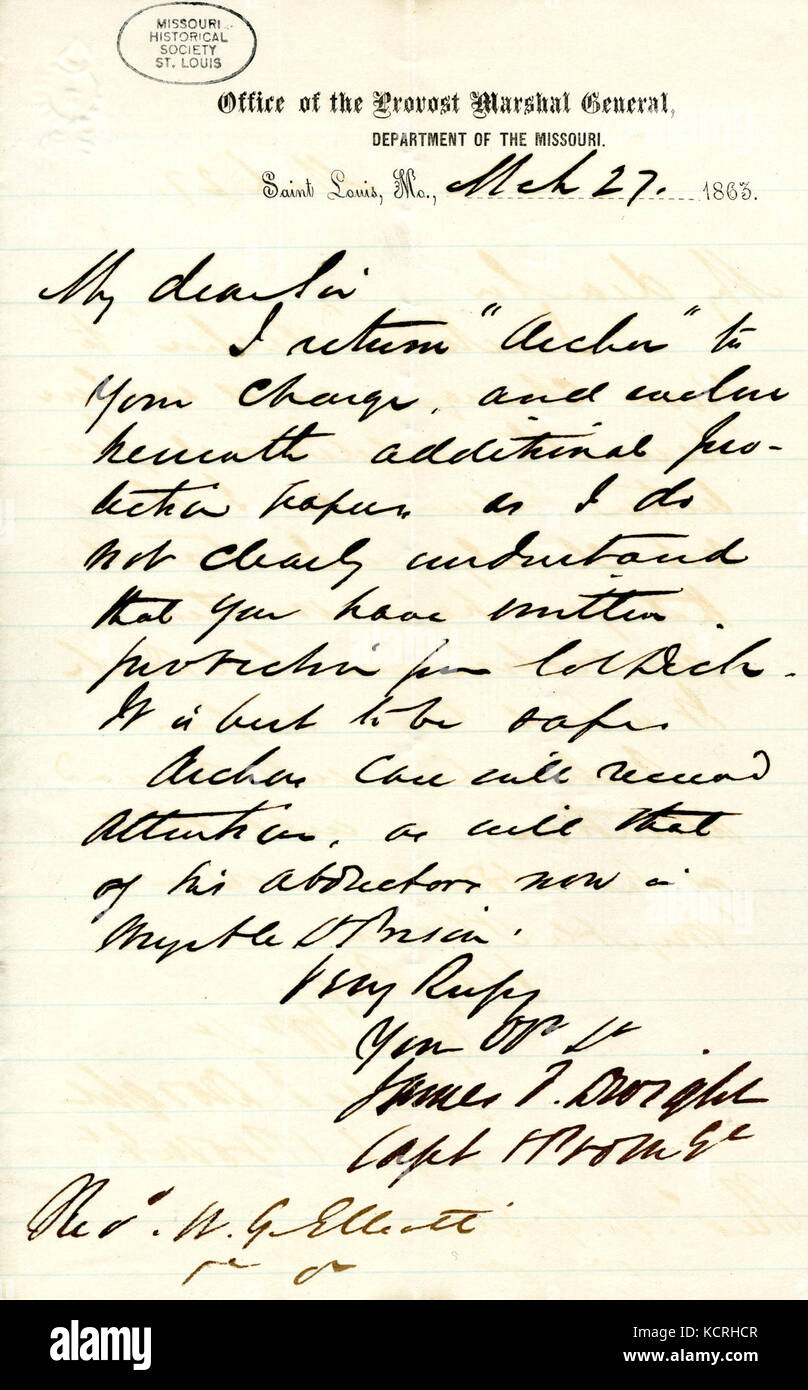 MISSOURI
HISTORICAL
SOCIETY
ST. LOUIS
Office of the Provost Marshal General,
DEPARTMENT OF THE MISSOURI.
Saint Louis, Mo., Mch 27. 1863.
My dear Sir
I return "Archer" to
your charge, and enclose
herewith additional pro-
tection papers as I do
not clearly understand
that you have written
protection from Col Dick.
It is best to be safe.
Archers Case will receive
attention, as will that
of his abductors now in
Myrtle St Prison.
Very Respy
Your Obt St
James F. Dwight
Capt & Pro M Gl
Revd. W. G. Elliott
alamy
Image ID: KCRHCR
www.alamy.com